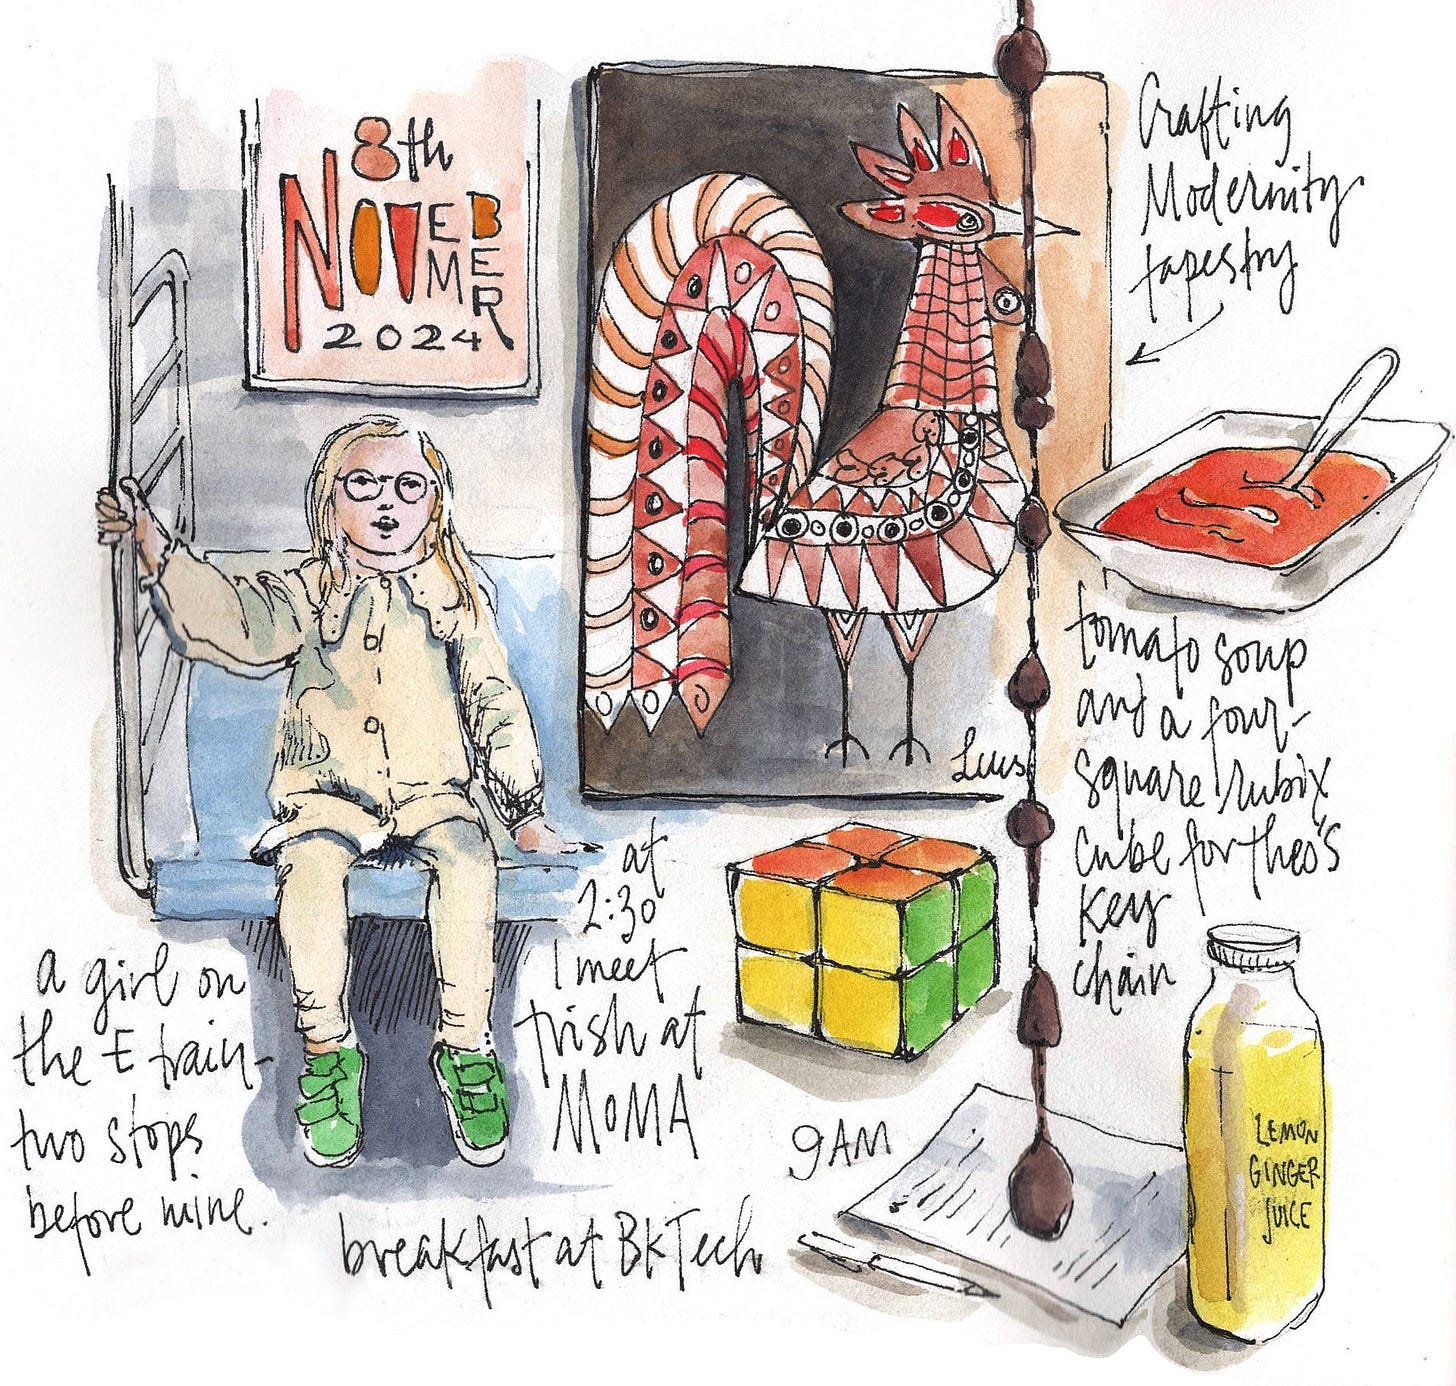 8th
NOVEMBER
2024
Crafting
Modernity
tapestry
tomato soup
and a four-
square rubix
cube for Theo's
key
chain
at
2:30
I meet
trish at
MOMA
a girl on
the E train-
two stops
before mine.
9AM
breakfast at BkTech
LEMON
GINGER
JUICE